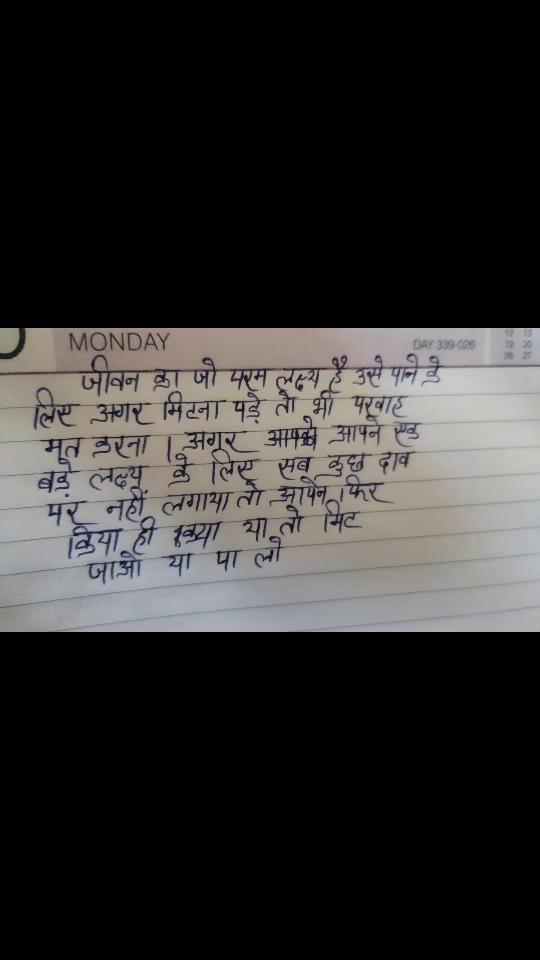 MONDAY
DAY 339-026
12 13
19 20
26 27
जीवन का जो परम लक्ष्य है उसे पाने के
लिए अगर मिटना पड़े तो भी परवाह
मत करना । अगर आपने एक
बड़े लक्ष्य के लिए सब कुछ दाव
पर नहीं लगाया तो आपने फिर
किया ही क्या या तो मिट
जाओ या पा लो